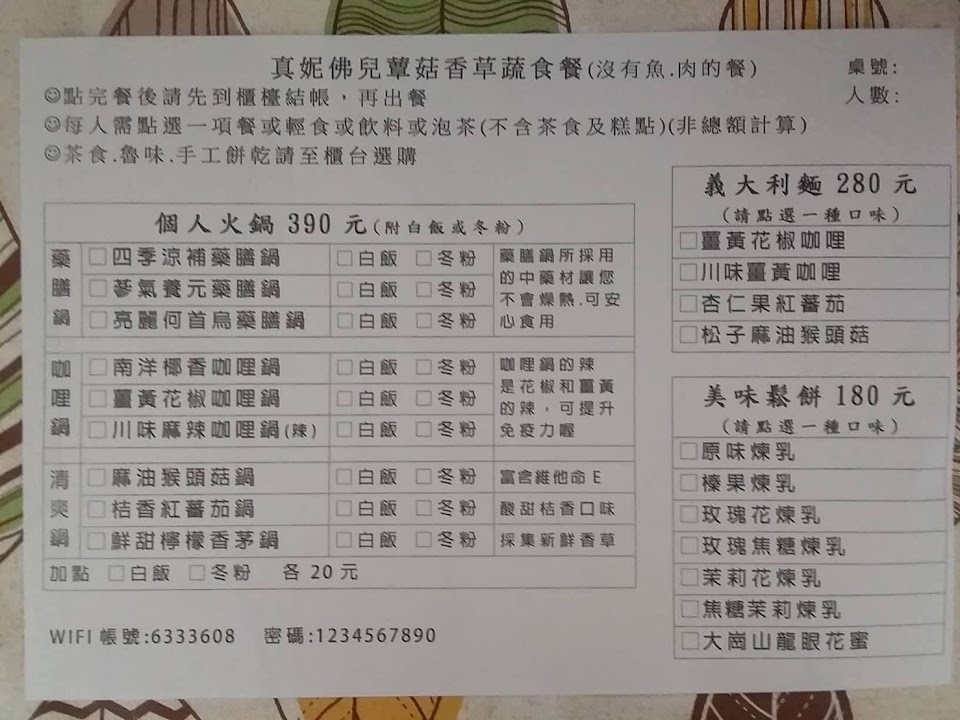 真妮佛兒蕈菇香草蔬食餐(沒有魚.肉的餐)
桌號:
人數:
☺點完餐後請先到櫃檯結帳，再出餐
☺每人需點選一項餐或輕食或飲料或泡茶(不含茶食及糕點)(非總額計算)
☺茶食.魯味.手工餅乾請至櫃台選購
個人火鍋 390 元(附白飯或冬粉)
藥膳鍋
□四季涼補藥膳鍋 □白飯 □冬粉
□蔘氣養元藥膳鍋 □白飯 □冬粉
□亮麗何首烏藥膳鍋 □白飯 □冬粉
藥膳鍋所採用
的中藥材讓您
不會燥熱.可安
心食用
咖哩鍋
□南洋椰香咖哩鍋 □白飯 □冬粉
□薑黃花椒咖哩鍋 □白飯 □冬粉
□川味麻辣咖哩鍋(辣) □白飯 □冬粉
咖哩鍋的辣
是花椒和薑黃
的辣，可提升
免疫力喔
清爽鍋
□麻油猴頭菇鍋 □白飯 □冬粉 富含維他命 E
□桔香紅蕃茄鍋 □白飯 □冬粉 酸甜桔香口味
□鮮甜檸檬香茅鍋 □白飯 □冬粉 採集新鮮香草
加點 □白飯 □冬粉 各 20 元
WIFI 帳號:6333608 密碼:1234567890
義大利麵 280 元
(請點選一種口味)
□薑黃花椒咖哩
□川味薑黃咖哩
□杏仁果紅蕃茄
□松子麻油猴頭菇
美味鬆餅 180 元
(請點選一種口味)
□原味煉乳
□榛果煉乳
□玫瑰花煉乳
□玫瑰焦糖煉乳
□茉莉花煉乳
□焦糖茉莉煉乳
□大崗山龍眼花蜜